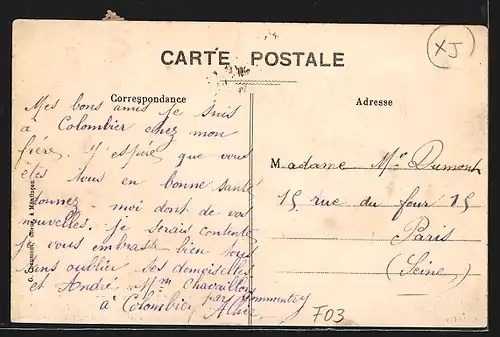 CARTE POSTALE
XJ
Correspondance
Adresse
Mes bons amis je suis
à Colombier chez mon
frère. J'espère que vous
êtes tous en bonne santé
donnez-moi dont de vos
nouvelles. Je serais contente
je vous embrasse bien tous
sans oublier ses demoiselles
et André Mm Chavaillon
à Colombier par Commentry
Allier
Madame Me Dumont
15 rue du four 15
Paris
(Seine)
F03